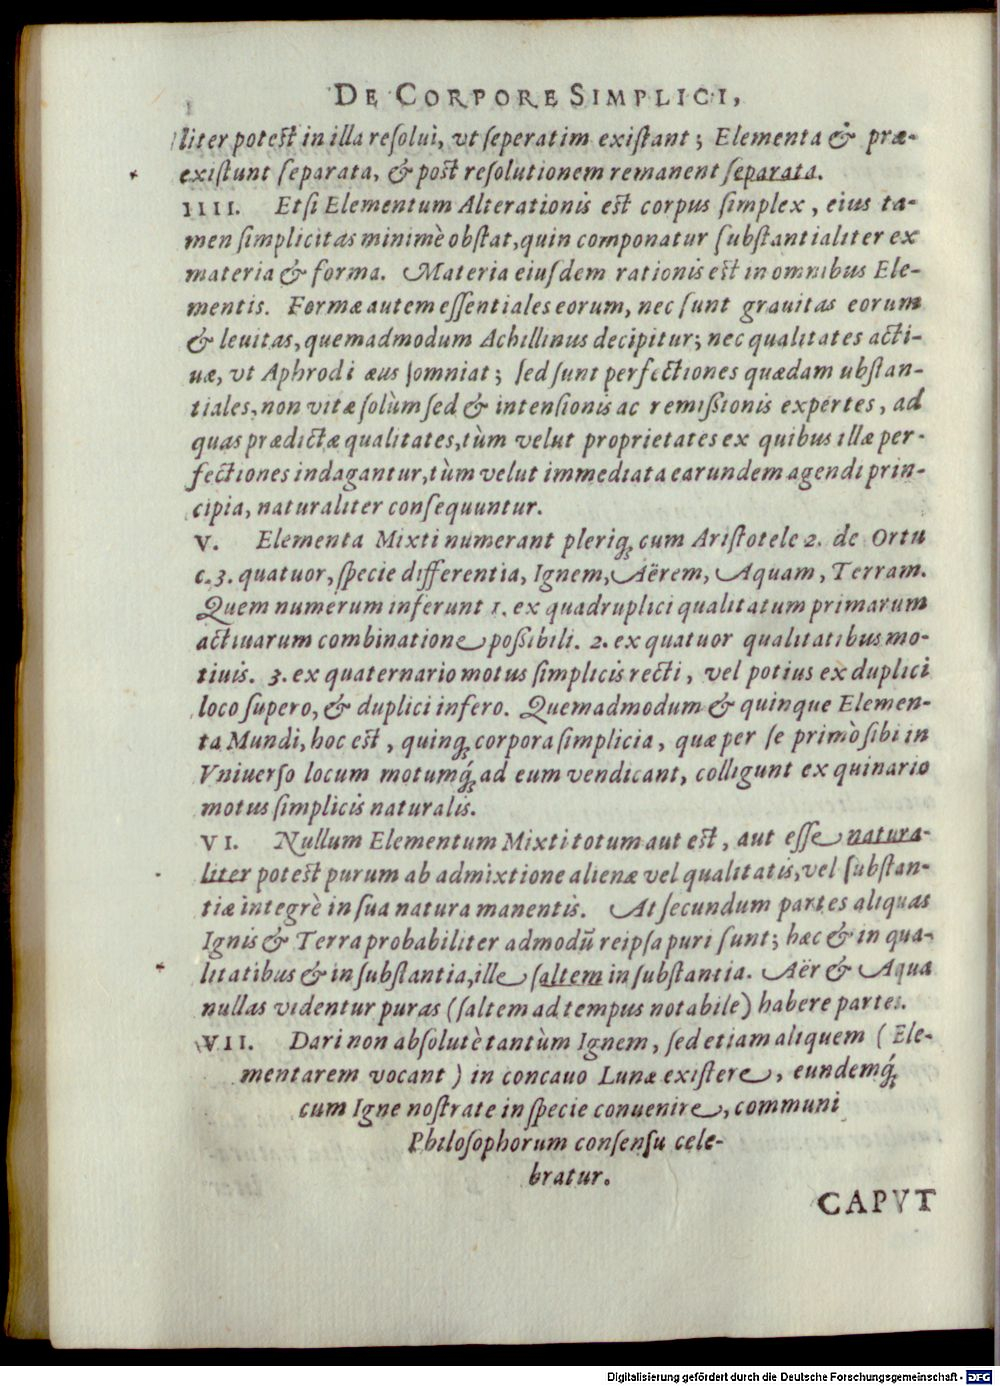 DE CORPORE SIMPLICI,
liter potest in illa resolui, vt seperatim existant; Elementa & præ-
existunt separata, & post resolutionem remanent separata.
IIII. Etsi Elementum Alterationis est corpus simplex, eius ta-
men simplicitas minimè obstat, quin componatur substantialiter ex
materia & forma. Materia eiusdem rationis est in omnibus Ele-
mentis. Formæ autem essentiales eorum, nec sunt grauitas eorum
& leuitas, quemadmodum Achillinus decipitur; nec qualitates acti-
uæ, vt Aphrodi æus somniat; sed sunt perfectiones quædam ubstan-
tiales, non vitæ solùm sed & intensionis ac remißionis expertes, ad
quas prædictæ qualitates, tùm velut proprietates ex quibus illæ per-
fectiones indagantur, tùm velut immediata earundem agendi prin-
cipia, naturaliter consequuntur.
V. Elementa Mixti numerant pleriq; cum Aristotele 2. de Ortu
c. 3. quatuor, specie differentia, Ignem, Aërem, Aquam, Terram.
Quem numerum inferunt 1. ex quadruplici qualitatum primarum
actiuarum combinatione poßibili. 2. ex quatuor qualitatibus mo-
tiuis. 3. ex quaternario motus simplicis recti, vel potius ex duplici
loco supero, & duplici infero. Quemadmodum & quinque Elemen-
ta Mundi, hoc est, quinq; corpora simplicia, quæ per se primò sibi in
Vniuerso locum motumq́; ad eum vendicant, colligunt ex quinario
motus simplicis naturalis.
VI. Nullum Elementum Mixti totum aut est, aut esse natura-
liter potest purum ab admixtione alienæ vel qualitatis, vel substan-
tiæ integrè in sua natura manentis. At secundum partes aliquas
Ignis & Terra probabiliter admodũ reipsa puri sunt; hæc & in qua-
litatibus & in substantia, ille saltem in substantia. Aër & Aqua
nullas videntur puras (saltem ad tempus notabile) habere partes.
VII. Dari non absolutè tantùm Ignem, sed etiam aliquem (Ele-
mentarem vocant) in concauo Lunæ existere, eundemq́;
cum Igne nostrate in specie conuenire, communi
Philosophorum consensu cele-
bratur.
CAPVT
Digitalisierung gefördert durch die Deutsche Forschungsgemeinschaft - DFG